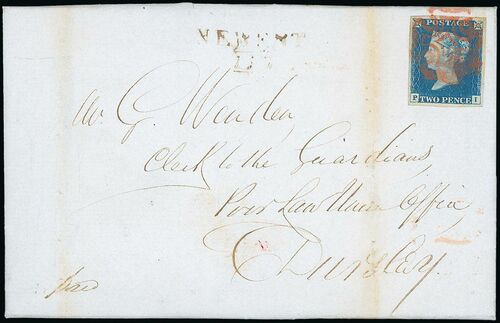 POSTAGE
P TWO PENCE I
NEWENT
Mr G. Wenden,
Clerk to the Guardians,
Poor Law Union Office,
Dursley.
paid